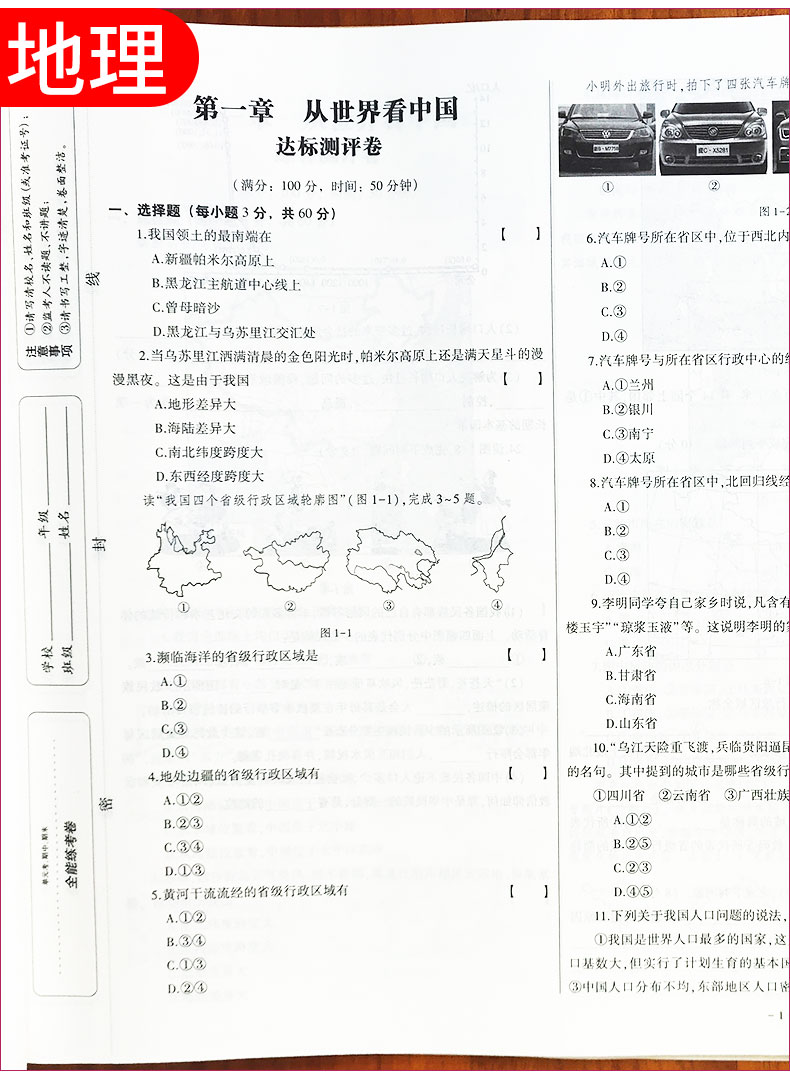 地理
第一章 从世界看中国
达标测评卷
(满分:100分,时间:50分钟)
一、选择题(每小题3分,共60分)
1.我国领土的最南端在 【 】
A.新疆帕米尔高原上
B.黑龙江主航道中心线上
C.曾母暗沙
D.黑龙江与乌苏里江交汇处
2.当乌苏里江洒满清晨的金色阳光时,帕米尔高原上还是满天星斗的漫
漫黑夜。这是由于我国 【 】
A.地形差异大
B.海陆差异大
C.南北纬度跨度大
D.东西经度跨度大
读“我国四个省级行政区域轮廓图”(图1-1),完成3~5题。
① ② ③ ④
图1-1
3.濒临海洋的省级行政区域是 【 】
A.①
B.②
C.③
D.④
4.地处边疆的省级行政区域有 【 】
A.①②
B.②③
C.③④
D.①③
5.黄河干流流经的省级行政区域有 【 】
A.①②
B.③④
C.①③
D.②④
小明外出旅行时,拍下了四张汽车牌
① ②
图1-2
6.汽车牌号所在省区中,位于西北内
A.①
B.②
C.③
D.④
7.汽车牌号与所在省区行政中心的
A.①兰州
B.②银川
C.③南宁
D.④太原
8.汽车牌号所在省区中,北回归线经
A.①
B.②
C.③
D.④
9.李明同学夸自己家乡时说,凡含有
楼玉宇”“琼浆玉液”等。这说明李明的
A.广东省
B.甘肃省
C.海南省
D.山东省
10.“乌江天险重飞渡,兵临贵阳逼
的名句。其中提到的城市是哪些省级行
①四川省 ②云南省 ③广西壮族
A.①②
B.②⑤
C.②③
D.④⑤
11.下列关于我国人口问题的说法,
①我国是世界人口最多的国家,这
口基数大,但实行了计划生育的基本
③中国人口分布不均,东部地区人口密
- 1
注意事项
①请写清校名、姓名和班级(或准考证号);
②监考人不读题、不讲题;
③请书写工整、字迹清楚,卷面整洁。
学校 年级
班级 姓名
单元考、期中、期末
全能练考卷
线
封
密